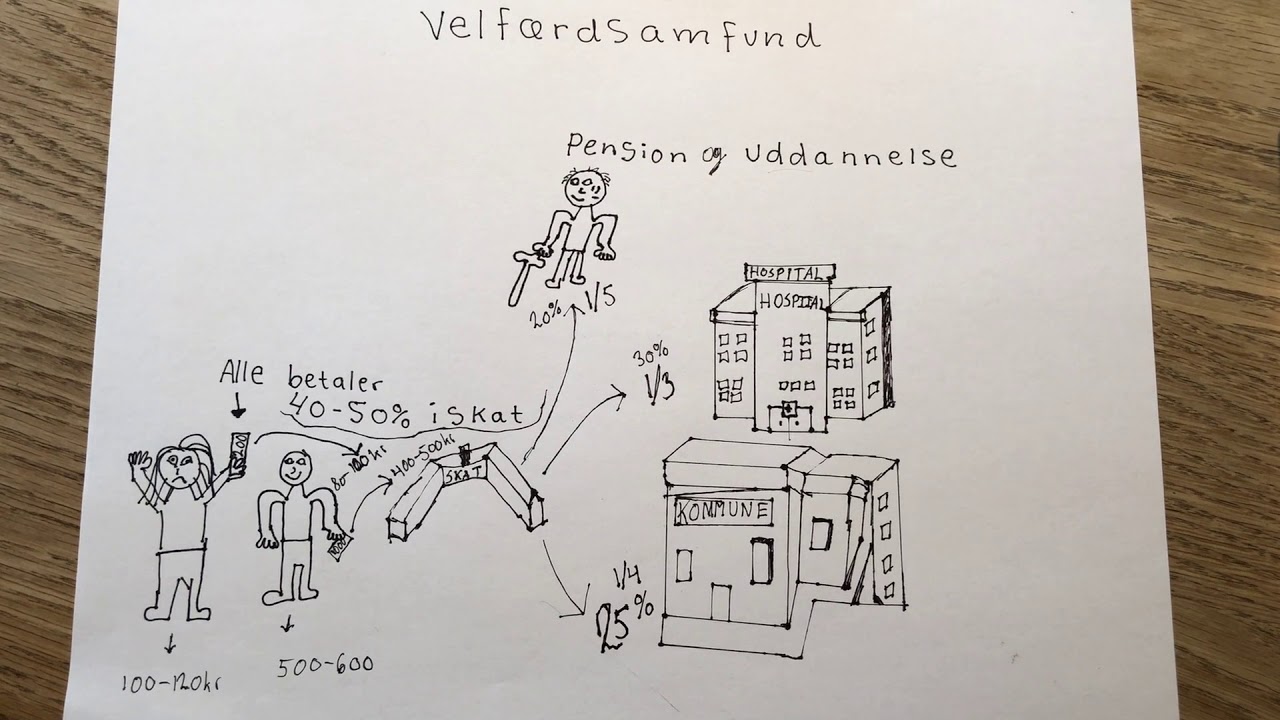 Velfærdsamfund
Pension og uddannelse
20% 1/5
HOSPITAL
HOSPITAL
30%
1/3
Alle betaler
40-50% i skat
200
80-100kr
400-500kr
SKAT
1000
KOMMUNE
1/4
25%
100-120kr
500-600